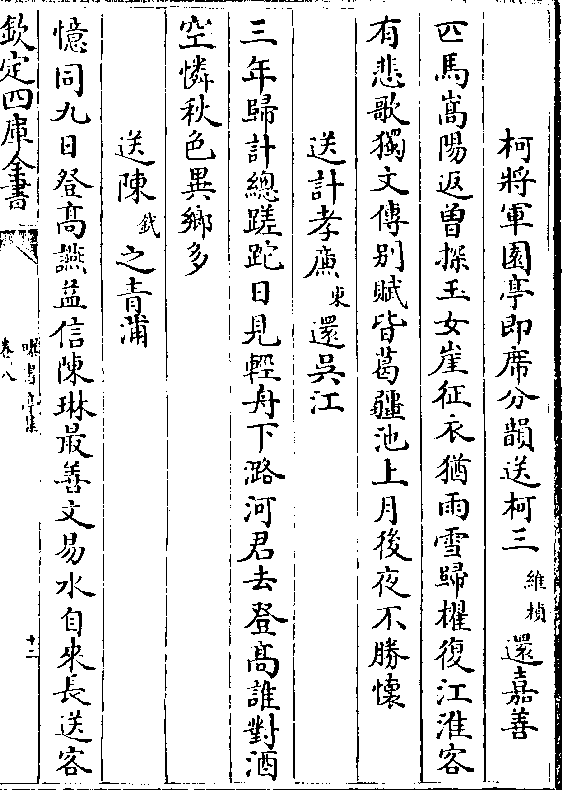 柯將軍園亭即席分韻送柯三維楨還嘉善
匹馬嵩陽返曾探玉女崖征衣猶雨雪歸櫂復江淮客
有悲歌獨文傳别賦皆葛疆池上月後夜不勝懷
送計孝廉東還吳江
三年歸計總蹉跎日見輕舟下潞河君去登髙誰對酒
空憐秋色異鄉多
送陳𢧐之青浦
憶同九日登髙讌益信陳琳最善文易水自來長送客
欽定四庫全書
曝書亭集
卷八
十二